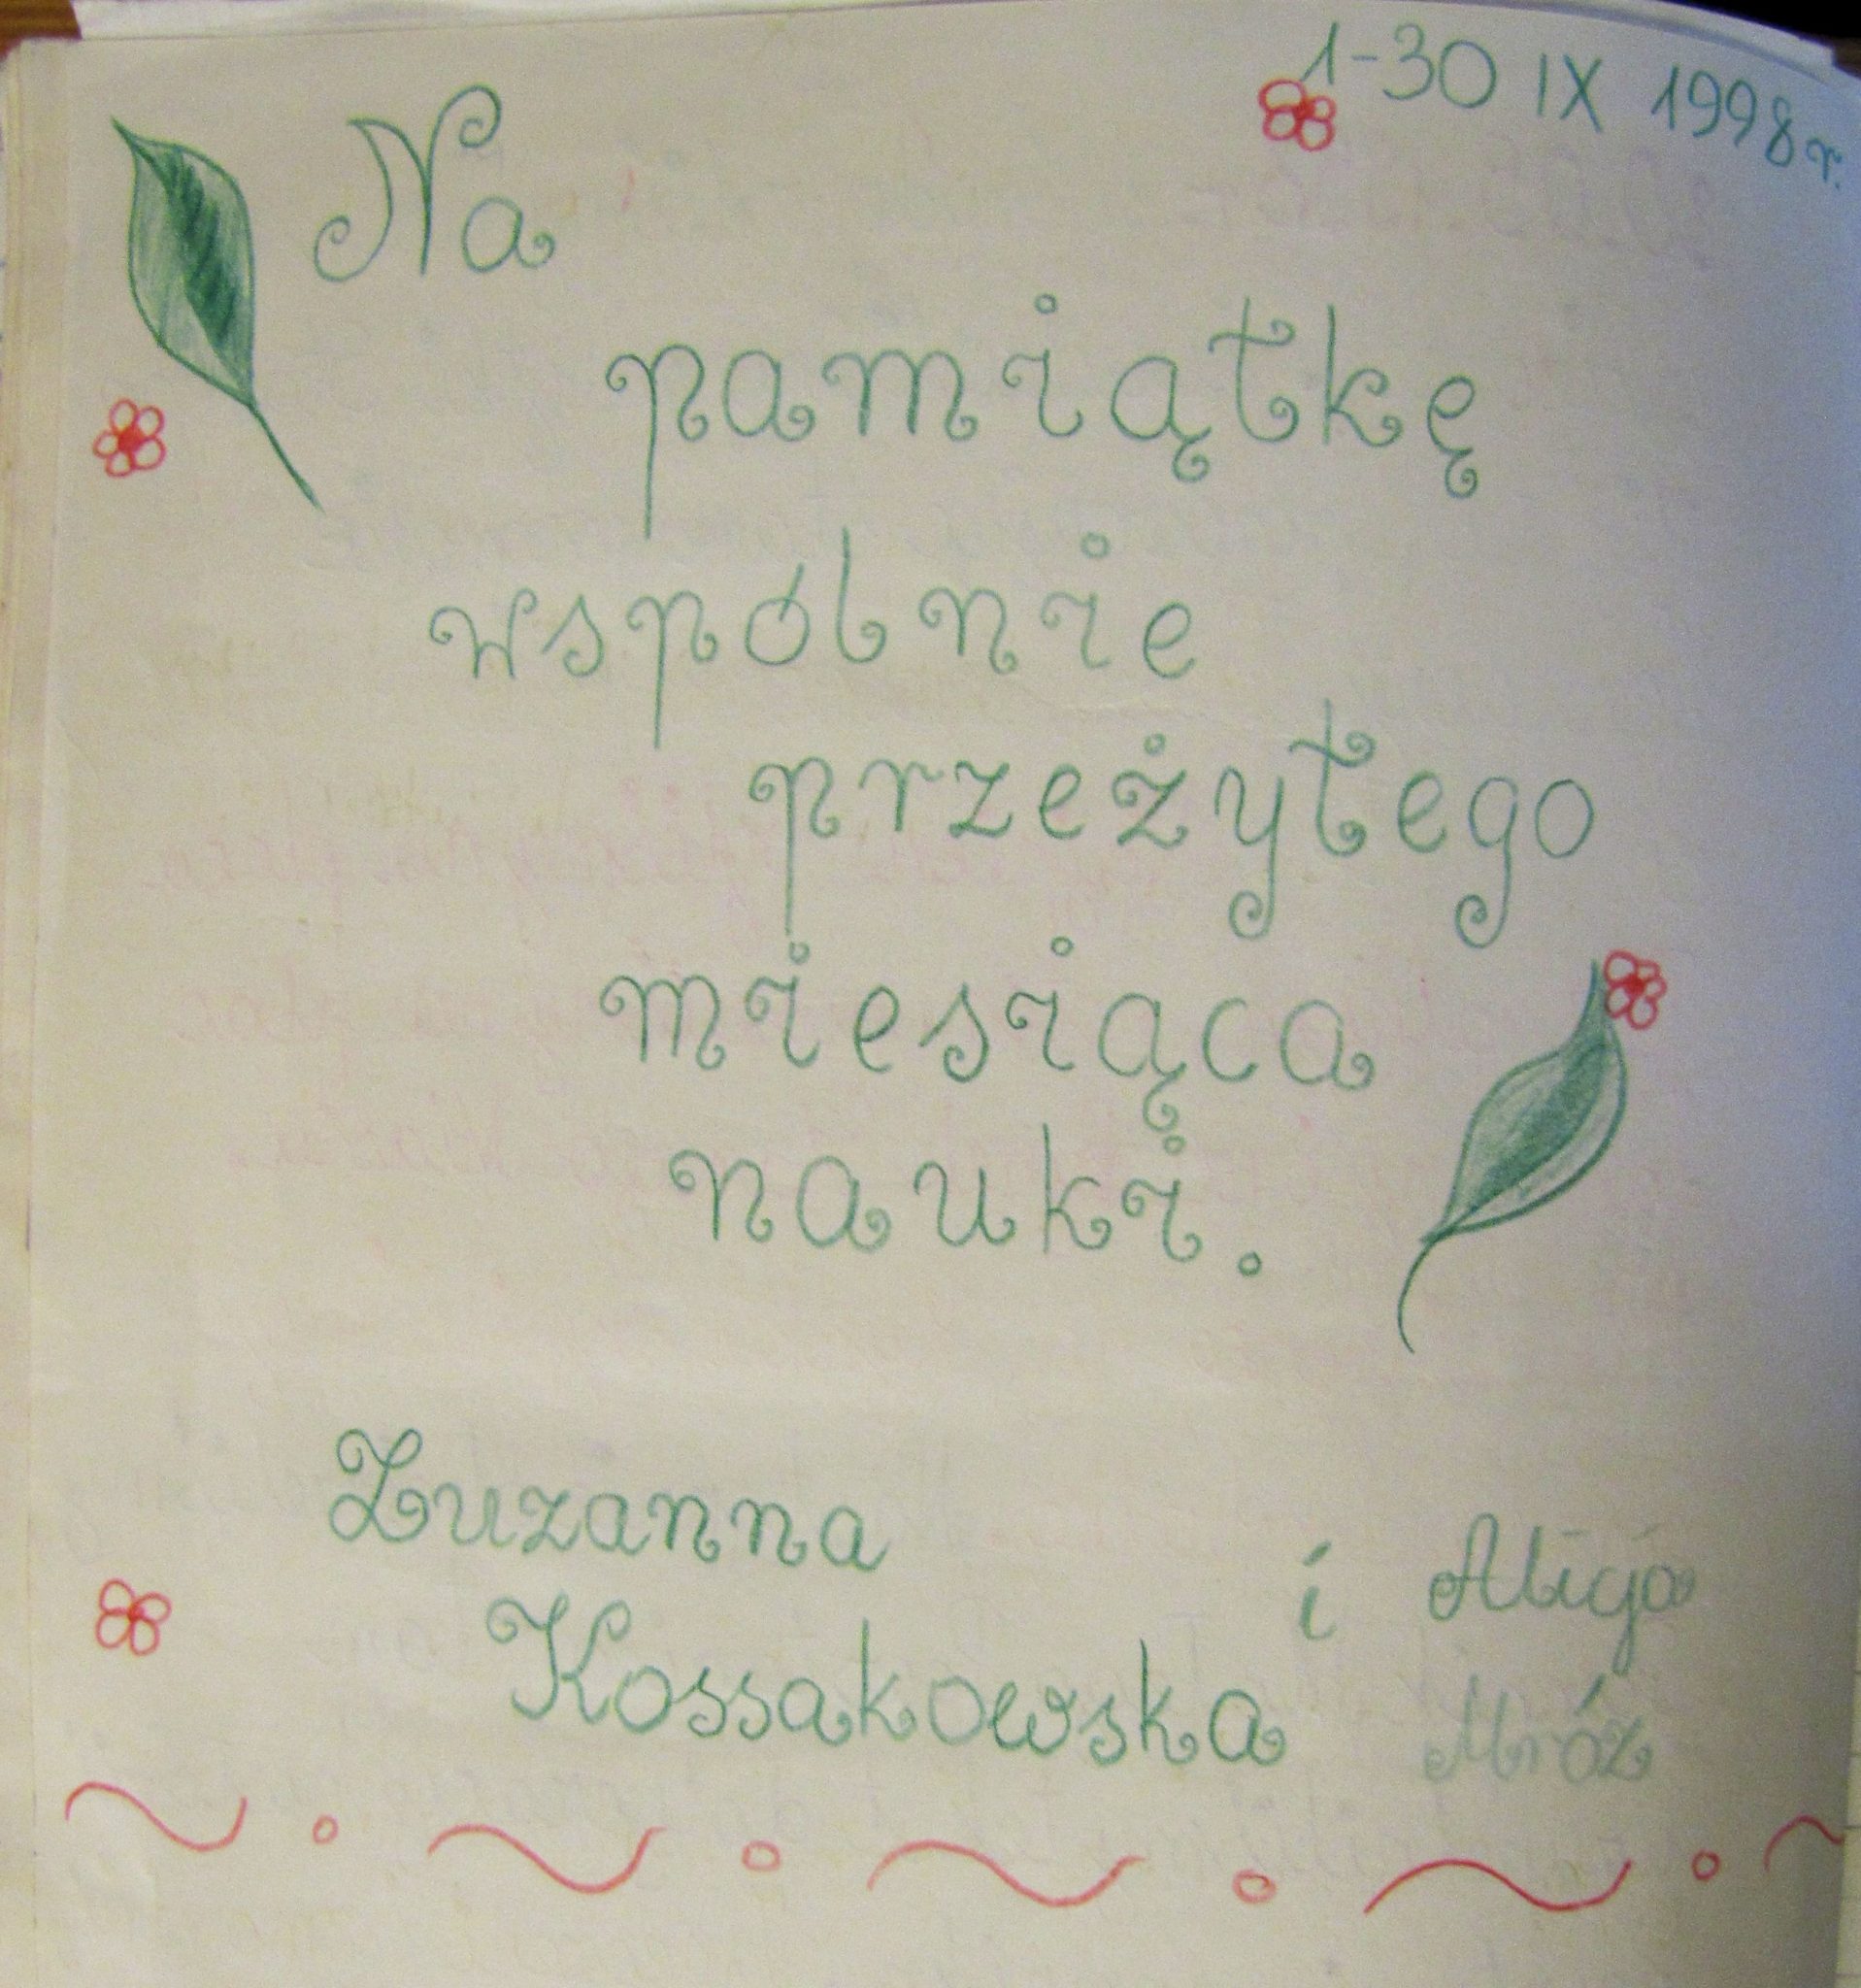 1-30 IX 1998 r.
Na
pamiątkę
wspólnie
przeżytego
miesiąca
nauki.
Zuzanna
Kossakowska
i Alicja
Mróz